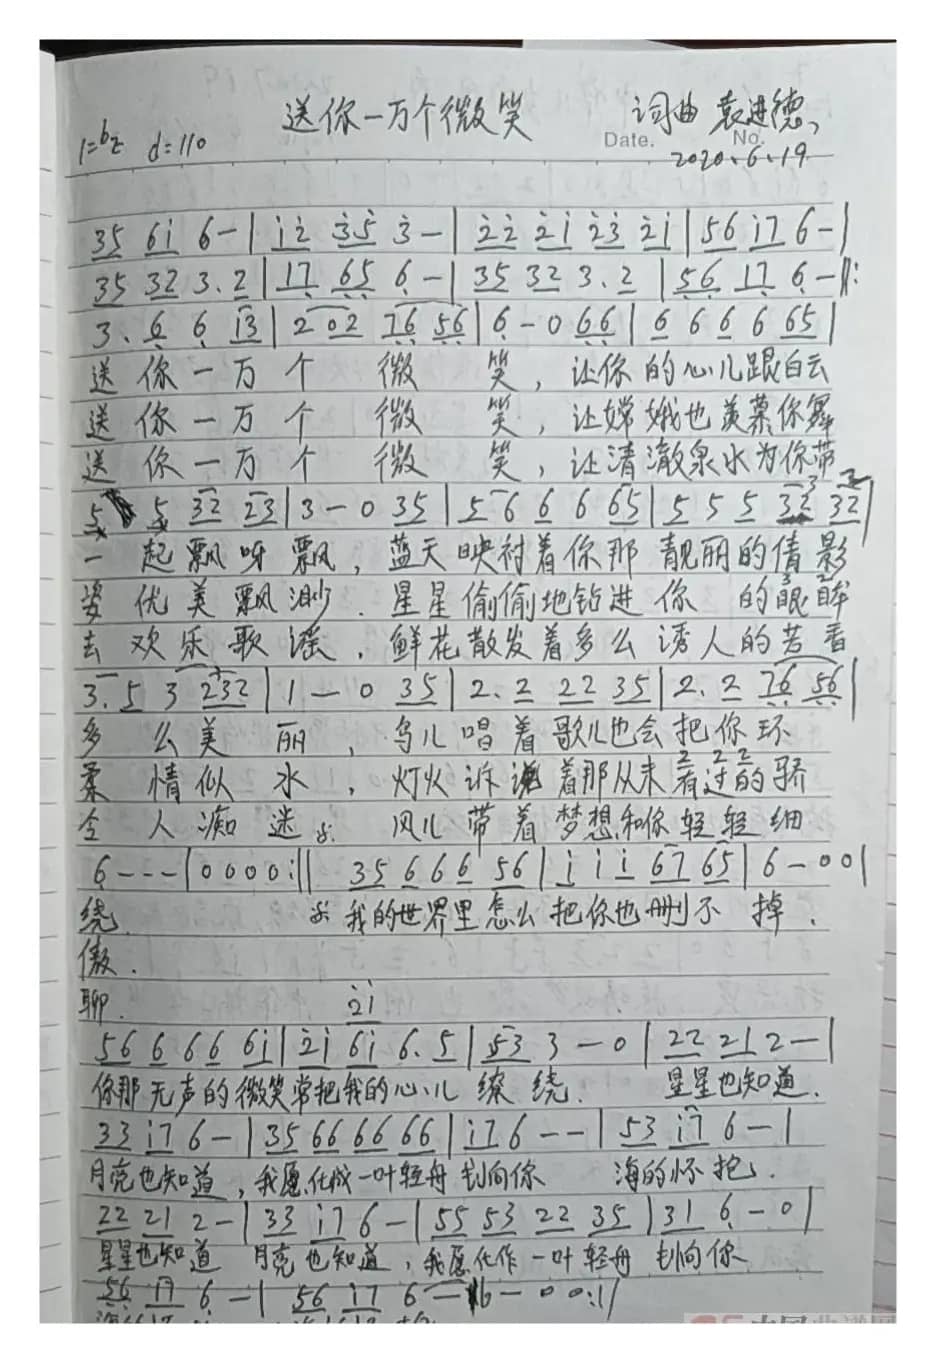 送你一万个微笑 词曲 袁进德、
1=bE d=110 Date. No.
2020、6、19
35 6i 6 - | i2 35 3 - | 22 2i 23 2i | 56 i7 6 - |
35 32 3.2 | 17 65 6 - | 35 32 3.2 | 56 17 6 - ‖:
3. 6 6 13 | 2 02 76 56 | 6 - 0 66 | 6 6 6 6 65 |
送你一万个微笑，让你的心儿跟白云
送你一万个微笑，让嫦娥也羡慕你舞
送你一万个微笑，让清澈泉水为你带
5 5 32 23 | 3 - 0 35 | 5 6 6 6 65 | 5 5 5 32 32 |
一起飘呀飘，蓝天映衬着你那靓丽的倩影
姿优美飘渺．星星偷偷地钻进你的眼眸
去欢乐歌谣．鲜花散发着多么诱人的芳香
3. 5 3 232 | 1 - 0 35 | 2. 2 22 35 | 2. 2 76 56 |
多么美丽，鸟儿唱着歌儿也会把你环
柔情似水，灯火诉说着那从未有过的骄
令人痴迷 风儿带着梦想和你轻轻细
6 - - - | 0 0 0 0 :‖ 35 6 6 6 56 | i i i 67 65 | 6 - 0 0 |
绕． 我的世界里怎么把你也删不掉．
傲．
聊．
2i
56 6 6 6 6i | 2i 6i 6. 5 | 53 3 - 0 | 22 21 2 - |
你那无声的微笑常把我的心儿缭绕． 星星也知道．
33 i7 6 - | 35 66 66 66 | i7 6 - - | 53 i7 6 - |
月亮也知道，我愿化成一叶轻舟划向你 海的怀抱．
22 21 2 - | 33 i7 6 - | 55 53 22 35 | 31 6 - 0 |
星星也知道 月亮也知道，我愿化作一叶轻舟划向你
56 17 6 - | 56 17 6 - 6 - 0 0 :|